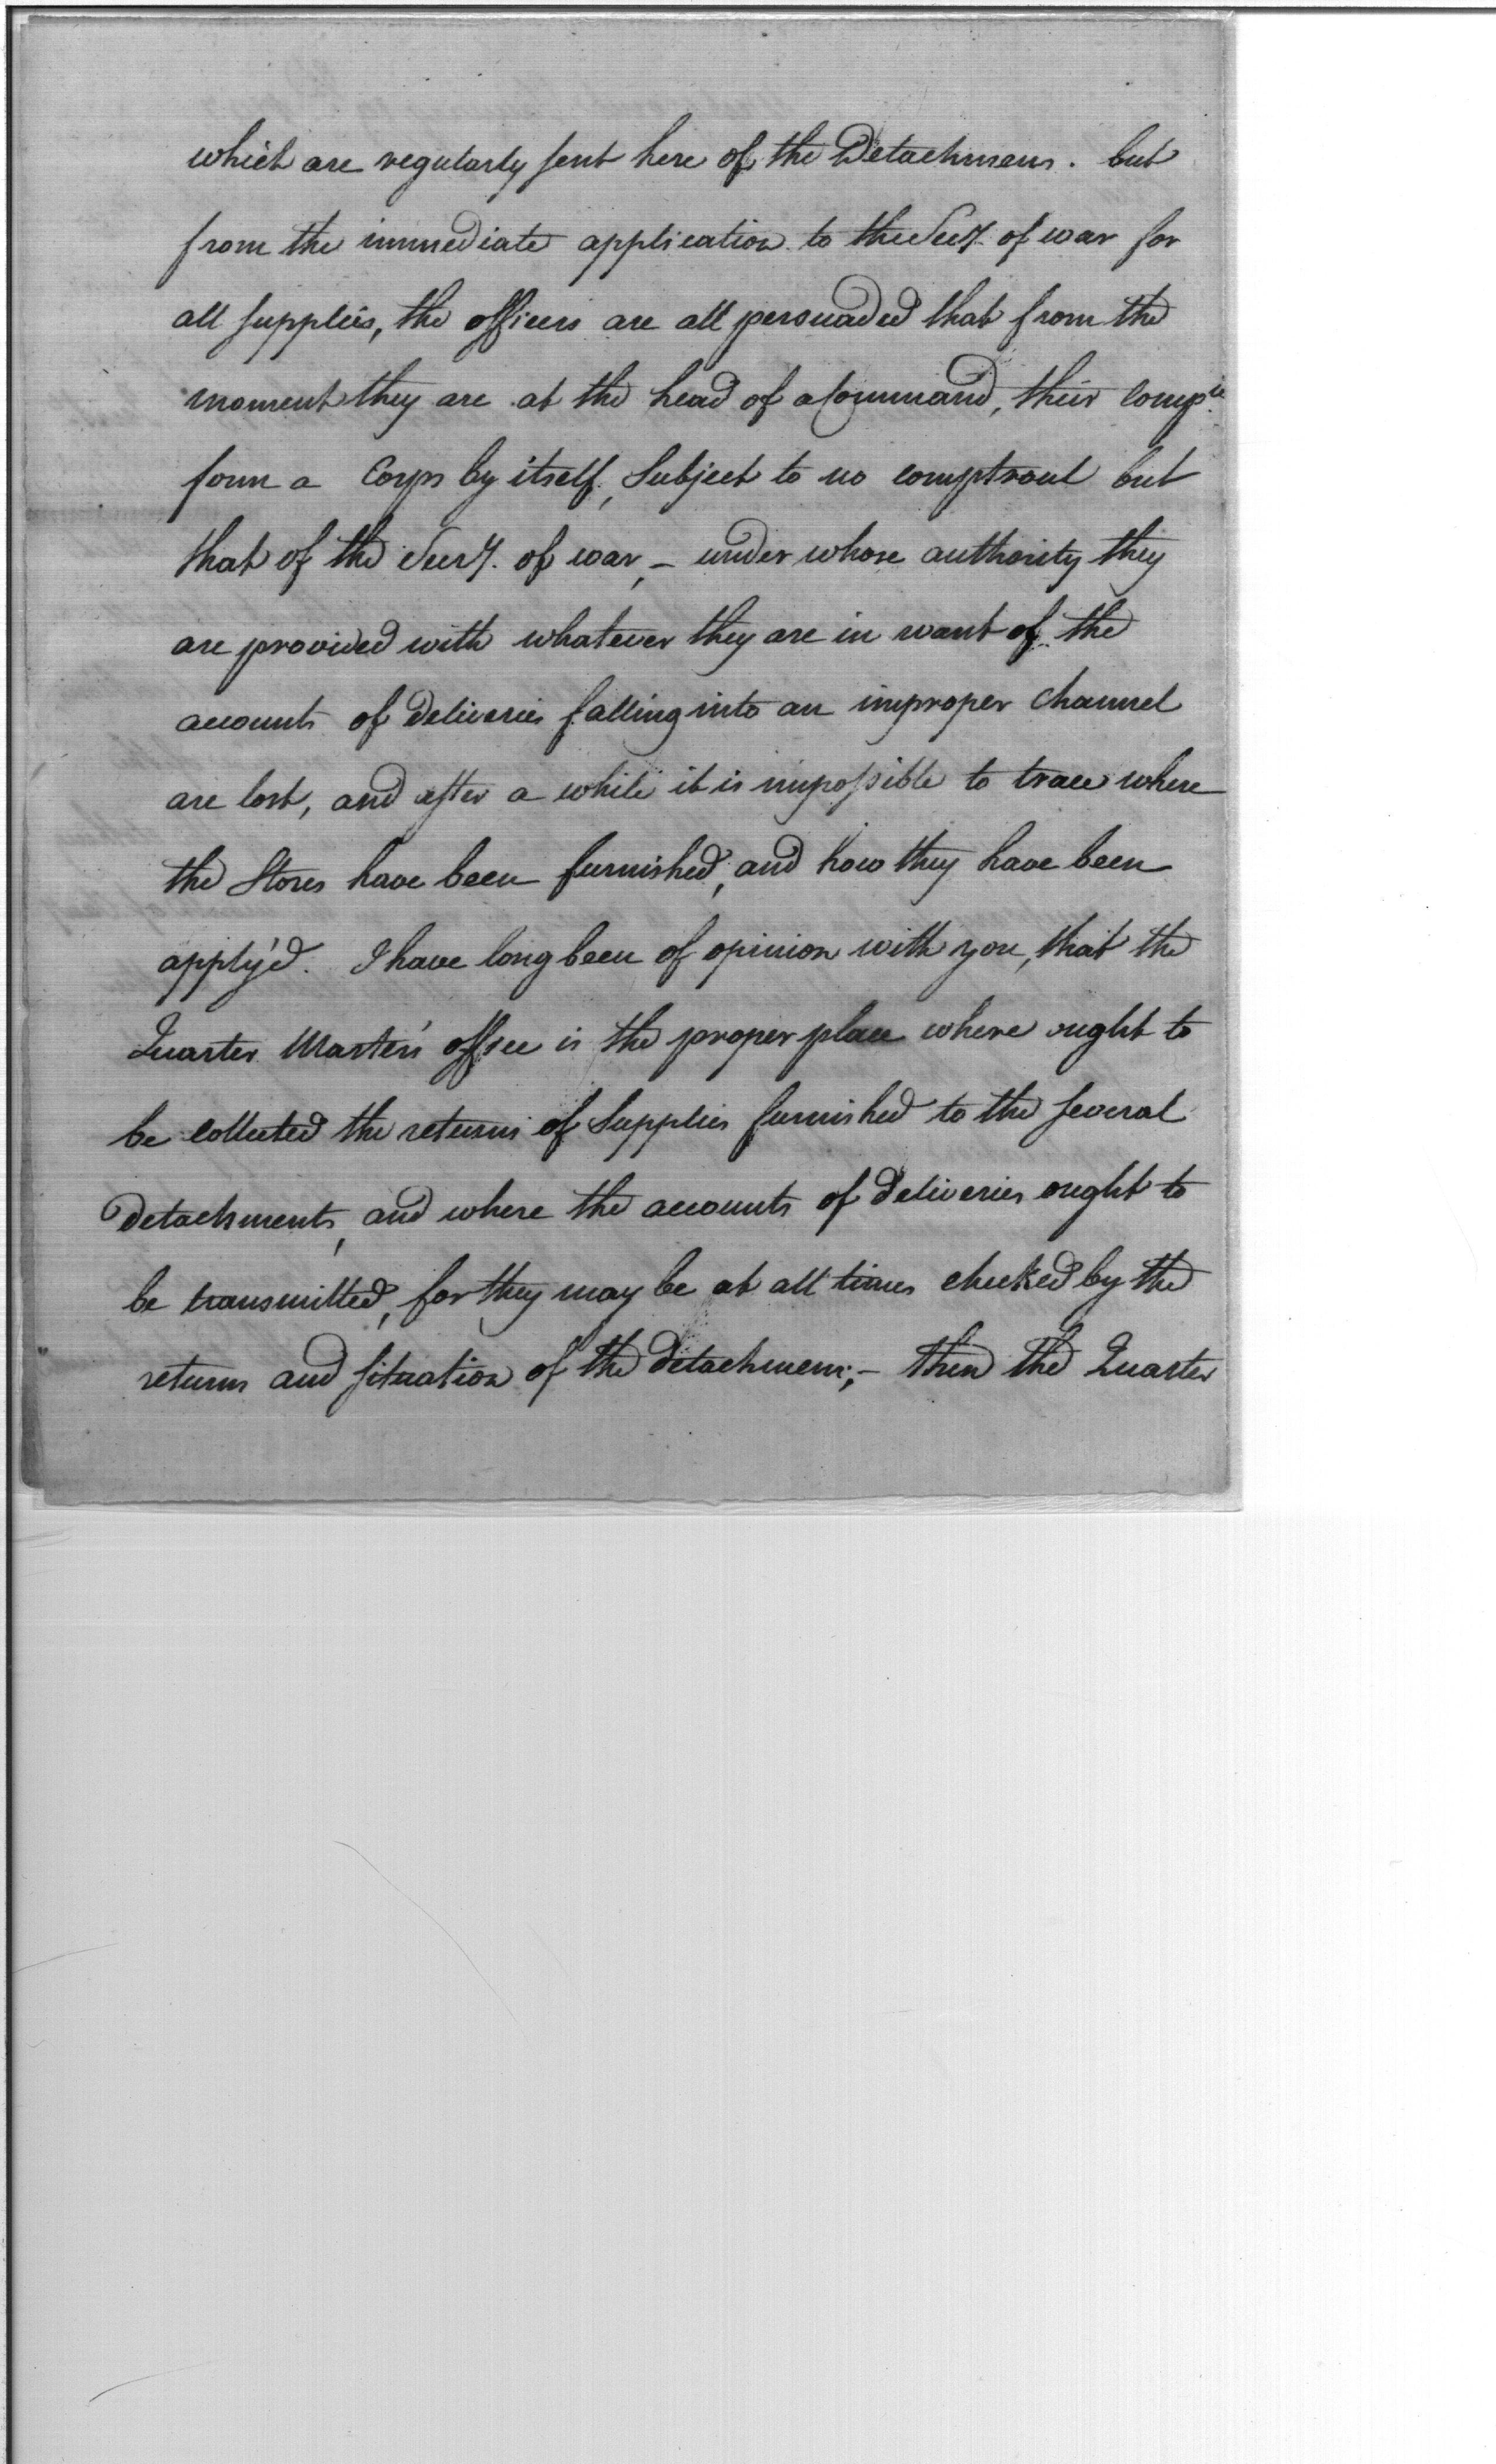 which are regularly sent here of the Detachmens. but
from the immediate application to the Secy. of war for
all supplies, the officers are all persuaded that from the
moment they are at the head of a Command, their Compie.
form a Corps by itself, Subject to no comptroul but
that of the Secry. of war, – under whose authority they
are provided with whatever they are in want of. the
accounts of deliveries falling into an improper Channel
are lost, and after a while it is impossible to trace where
the Stores have been furnished, and how they have been
apply'd. I have long been of opinion with you, that the
Quarter Master's office is the proper place where ought to
be collected the returns of Supplies furnished to the several
detachments, and where the accounts of deliveries ought to
be transmitted, for they may be at all times checked by the
returns and situation of the detachmens; – then the Quarter